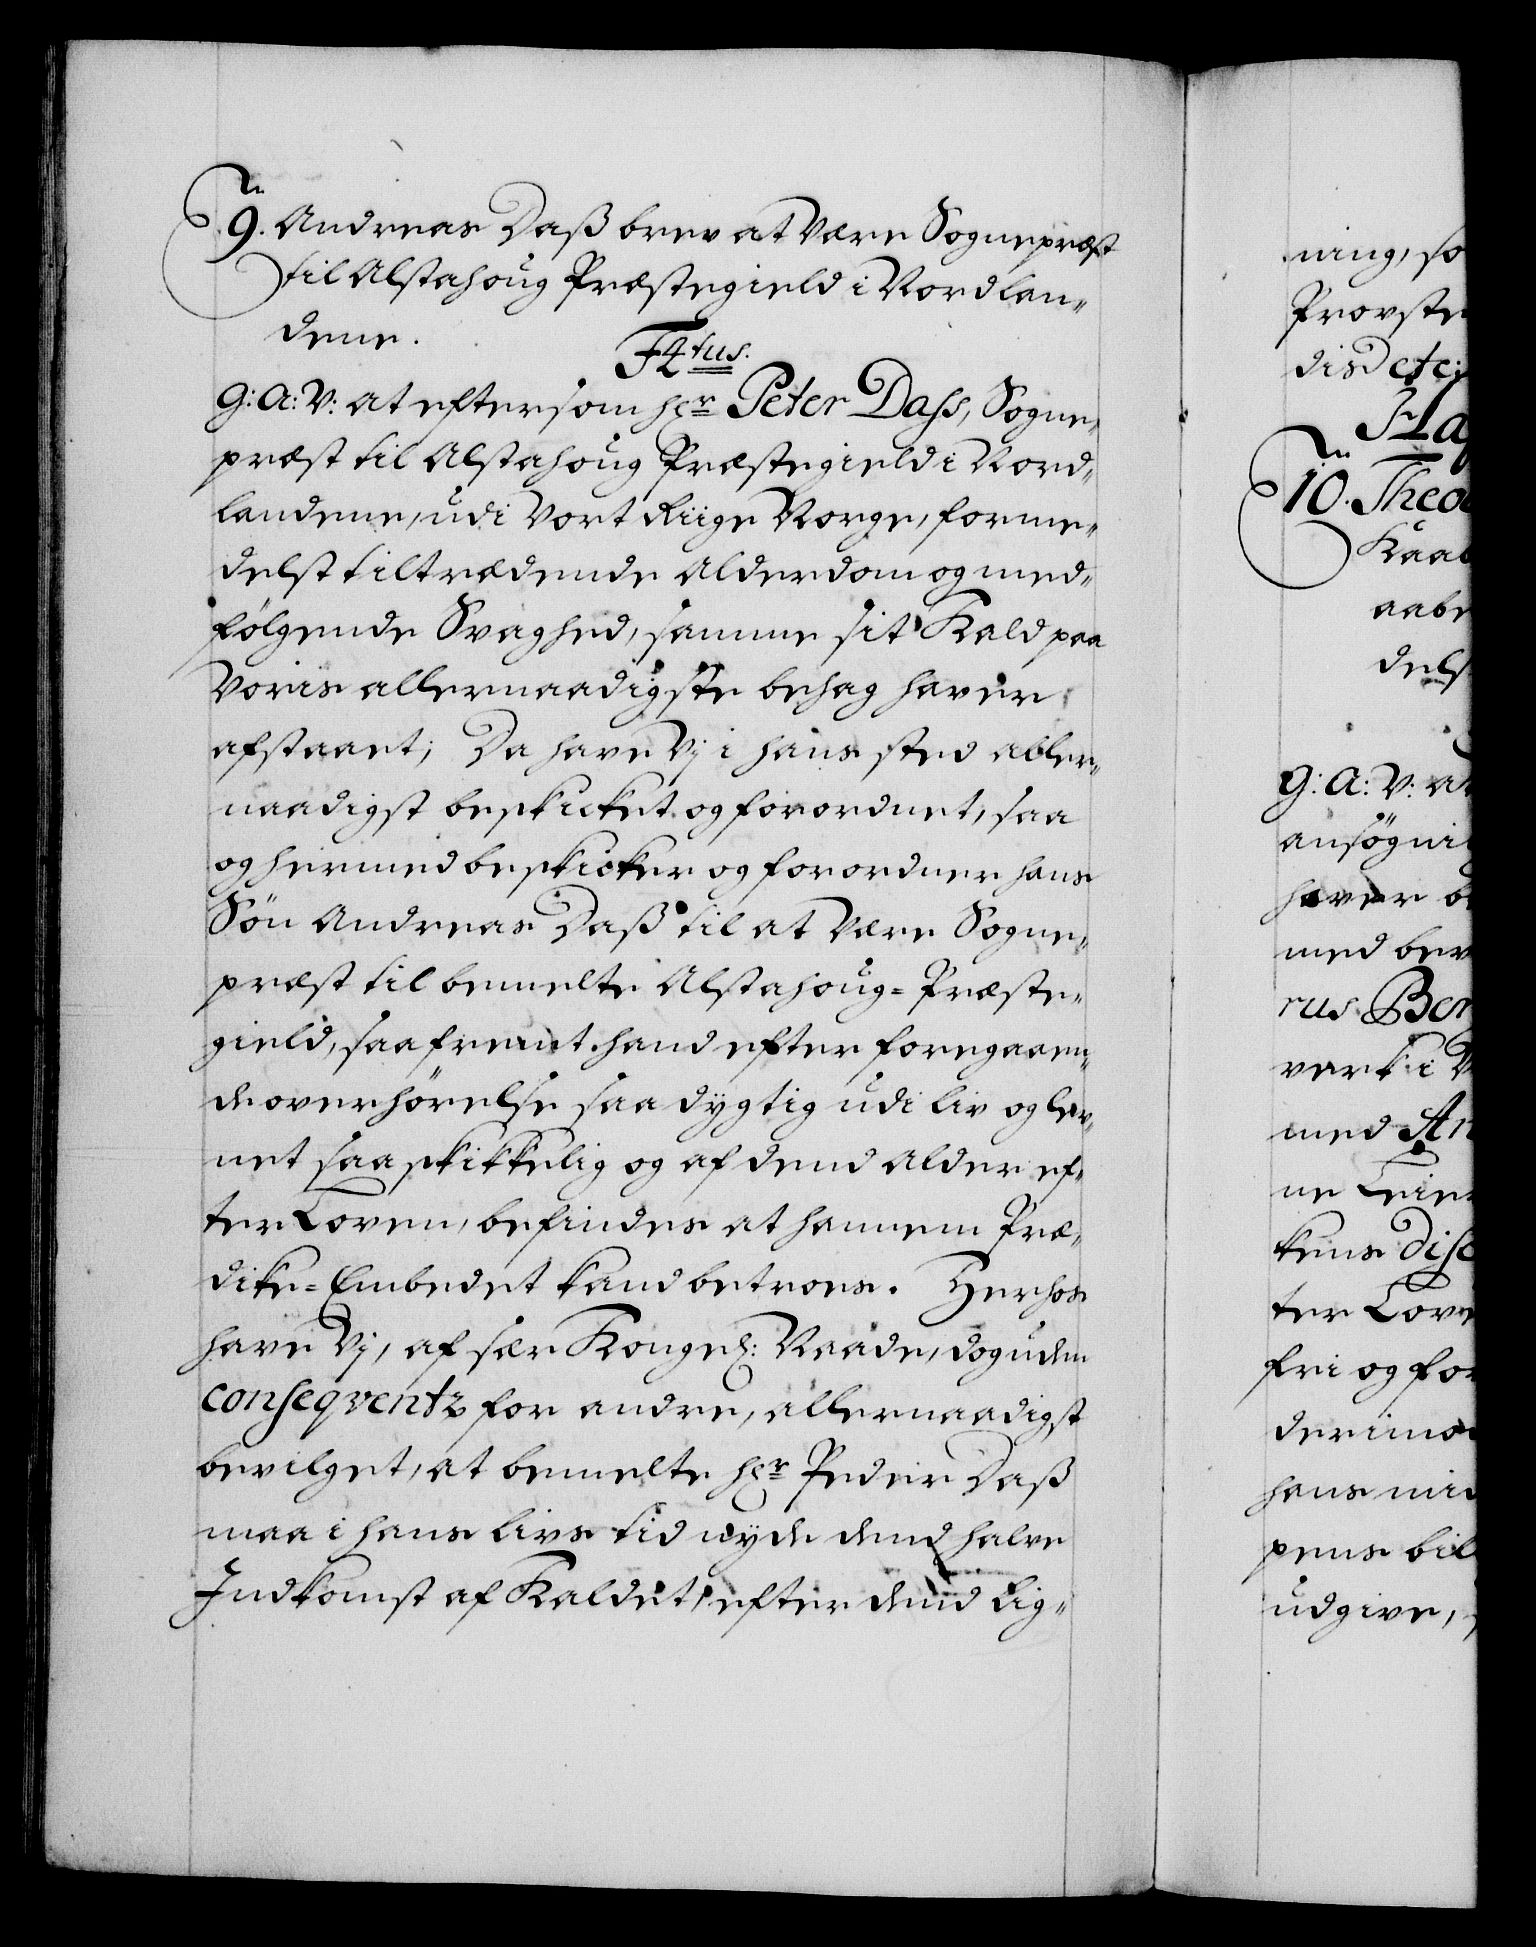 9. Andreas Daß brev at være Sognepræst
til Alstahoug Præstegield i Nordlan-
dene.
F4tus.
G: A: V: at eftersom hr Peter Dass, Sogne-
præst til Alstahoug Præstegield i Nord-
landene, udi Vort Riige Norge, forme-
delst tiltrædende Alderdom og med-
følgende Svaghed, samme sit Kald paa
Voris allernaadigste behag haver
afstaaet; Da have Vj i hans sted aller-
naadigst beskicket og forordnet, saa
og hermed beskicker og forordner hans
Søn Andreas Daß til at være Sogne-
præst til bemelte Alstahoug-Præste-
gield, saafremt hand efter foregaaen-
de overhørelse saa dygtig udi liv og lev-
net saa skikkelig og af dend Alder ef-
ter Loven, befindes at hannem Præ-
dike-Embedet kand betroes. Herhos
have Vj, af sær Kongel: Naade, dog uden
conseqventz for andre, allernaadigst
bevilget, at bemelte hr Peder Daß
maa i hans livs tid nyde dend halve
Indkomst af Kaldet, efter dend Lig-
ning, so
Provste
dis Dete:
Haf
10. Theo
Kaab
aabe
dels
G: A: V: at
ansøgni
haver be
med bev
rus Ber
verk i
med An
ne Leier
kens Disc
ter Love
fri og for
derimo
hans mid
pens bil
udgive,